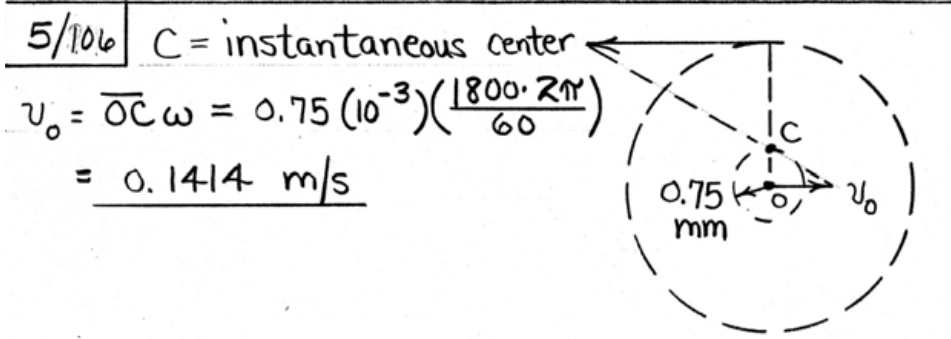 5/106 C = instantaneous center
v₀ = O̅C̅ ω = 0.75 (10⁻³)(1800·2π/60)
= 0.1414 m/s
C
0.75 O v₀
mm